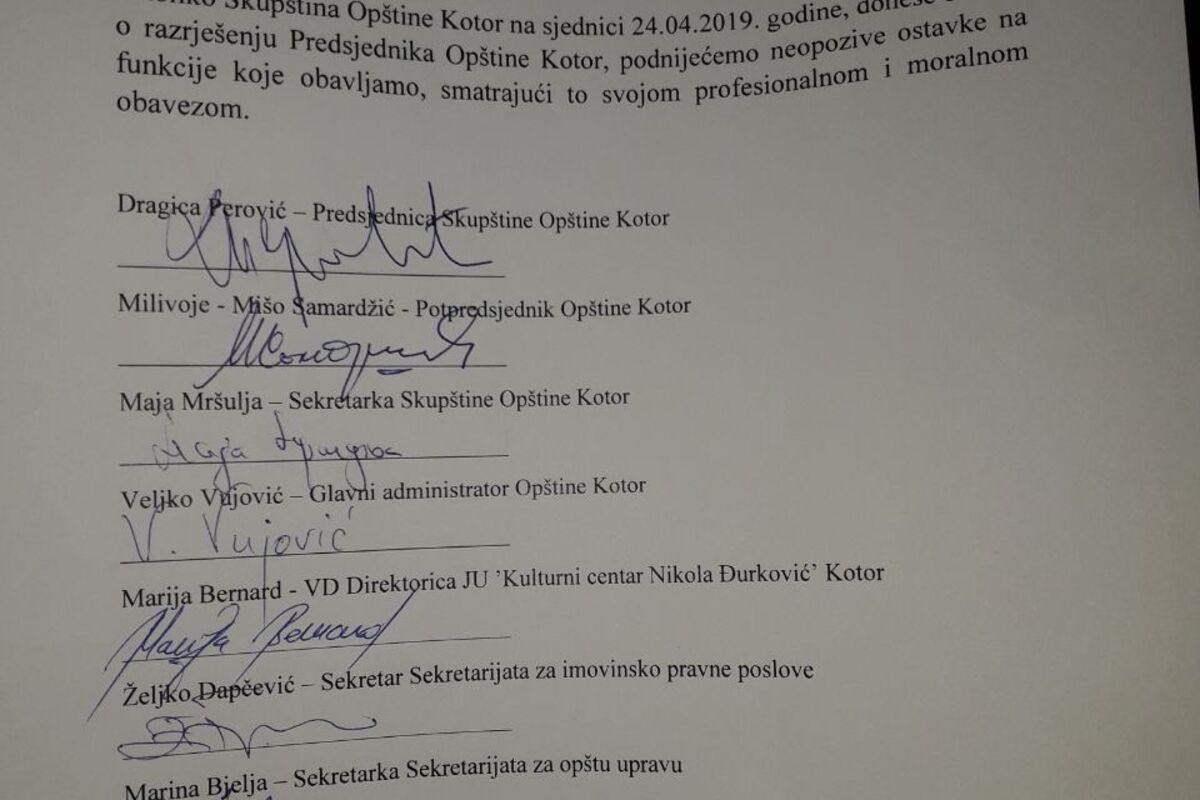 Skupština Opštine Kotor na sjednici 24.04.2019. godine,
o razrješenju Predsjednika Opštine Kotor, podnijećemo neopozive ostavke na
funkcije koje obavljamo, smatrajući to svojom profesionalnom i moralnom
obavezom.
Dragica Perović – Predsjednica Skupštine Opštine Kotor
Milivoje - Mišo Samardžić - Potpredsjednik Opštine Kotor
Maja Mršulja – Sekretarka Skupštine Opštine Kotor
Veljko Vujović – Glavni administrator Opštine Kotor
V. Vujović
Marija Bernard - VD Direktorica JU ’Kulturni centar Nikola Đurković’ Kotor
Marija Bernard
Željko Dapčević – Sekretar Sekretarijata za imovinsko pravne poslove
Marina Bjelja – Sekretarka Sekretarijata za opštu upravu